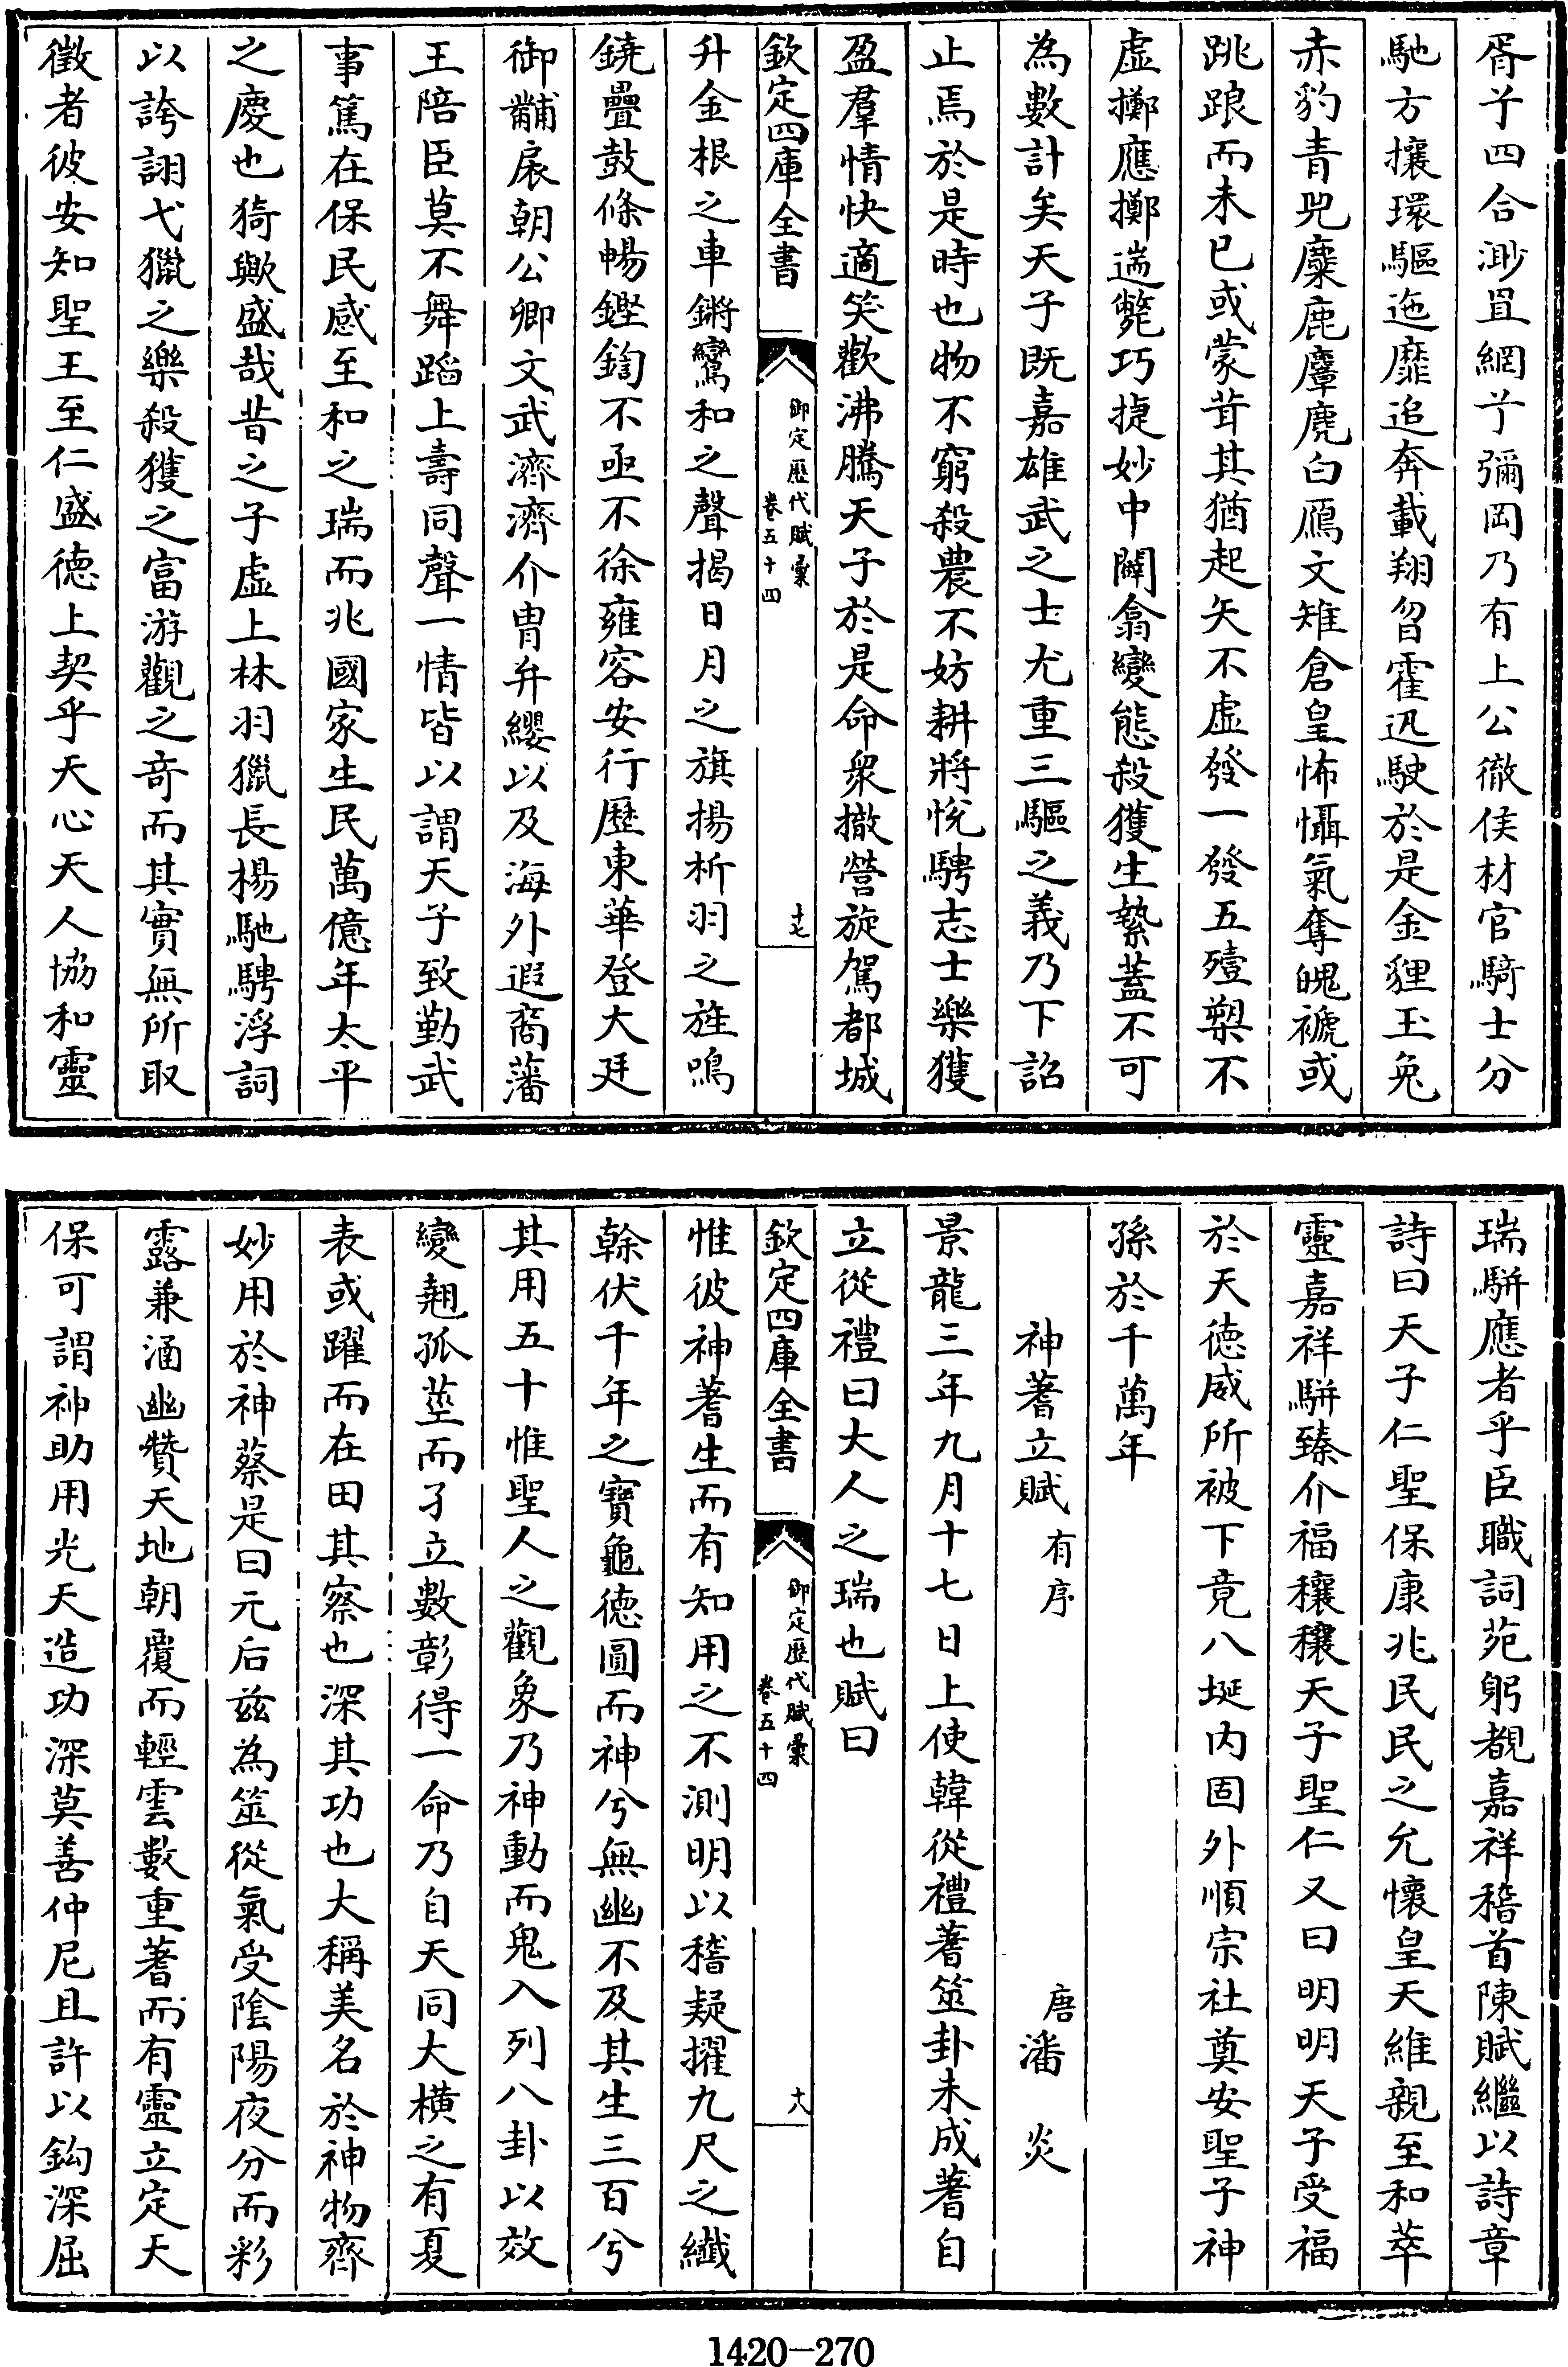 胥亍四合渺罝網亍彌岡乃有上公徹侯材官騎士分
馳方攘環驅迤靡追奔載翔曶霍迅駛於是金貍玉兔
赤豹青兕麋鹿麞麂白鴈文雉倉皇怖懾氣奪魄褫或
跳踉而未已或蒙茸其猶起矢不虛發一發五殪槊不
虛擲應擲遄斃巧捷妙中闢翕變態殺獲生縶蓋不可
為數計矣天子既嘉雄武之士尤重三驅之義乃下詔
止焉於是時也物不窮殺農不妨耕將悅騁志士樂獲
盈羣情快適笑歡沸騰天子於是命衆撤營旋駕都城
欽定四庫全書
御定歷代賦彙
卷五十四
十七
升金根之車鏘鸞和之聲揭日月之旗揚析羽之旌鳴
鐃疊鼓條暢鏗鍧不亟不徐雍容安行歷東華登大廷
御黼扆朝公卿文武濟濟介胄弁纓以及海外遐裔藩
王陪臣莫不舞蹈上壽同聲一情皆以謂天子致勤武
事篤在保民感至和之瑞而兆國家生民萬億年太平
之慶也猗歟盛哉昔之子虛上林羽獵長楊馳騁浮詞
以誇詡弋獵之樂殺獲之富游觀之奇而其實無所取
徵者彼安知聖王至仁盛德上契乎天心天人協和靈
瑞駢應者乎臣職詞苑躬覩嘉祥稽首陳賦繼以詩章
詩曰天子仁聖保康兆民民之允懷皇天維親至和萃
靈嘉祥駢臻介福穰穰天子聖仁又曰明明天子受福
於天德威所被下竟八埏内固外順宗社奠安聖子神
孫於千萬年
神蓍立賦 有序 唐 潘炎
景龍三年九月十七日上使韓從禮蓍筮卦未成蓍自
立從禮曰大人之瑞也賦曰
欽定四庫全書
御定歷代賦彙
卷五十四
十八
惟彼神蓍生而有知用之不測明以稽疑擢九尺之纖
榦伏千年之寶龜德圓而神兮無幽不及其生三百兮
其用五十惟聖人之觀象乃神動而鬼入列八卦以效
變翹孤莖而孑立數彰得一命乃自天同大橫之有夏
表或躍而在田其察也深其功也大稱美名於神物齊
妙用於神蔡是曰元后兹為筮從氣受陰陽夜分而彩
露兼涵幽贊天地朝覆而輕雲數重蓍而有靈立定天
保可謂神助用光天造功深莫善仲尼且許以鈎深屈
1420-270